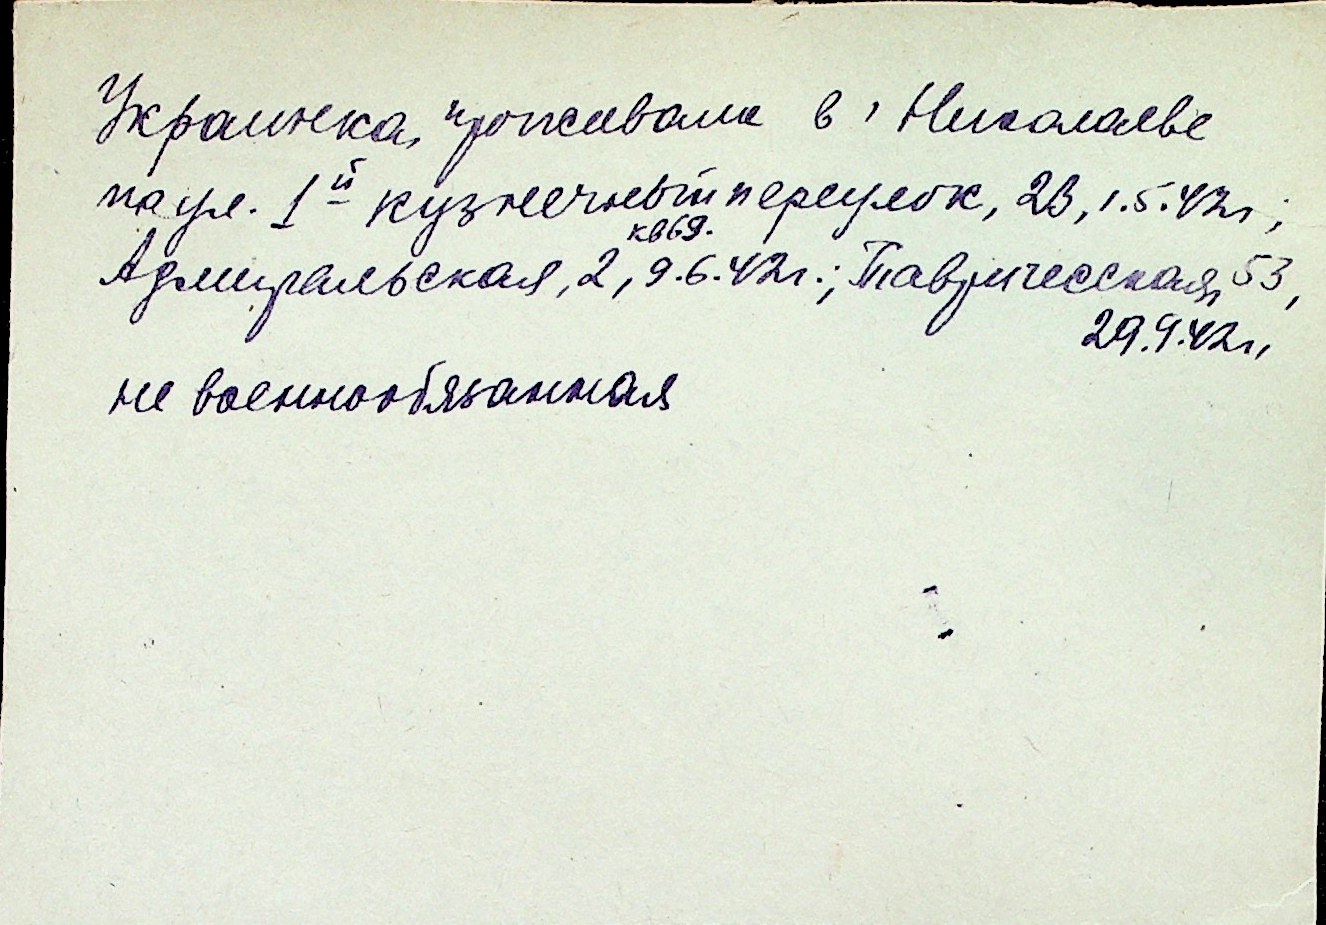 Украинка, проживала в г Николаеве
на ул. 1й кузнечный переулок, 23, 1.5.42г;
кв69.
Адмиральская, 2, 9.6.42г.; Таврическая, 53,
29.9.42г,
не военнообязанная